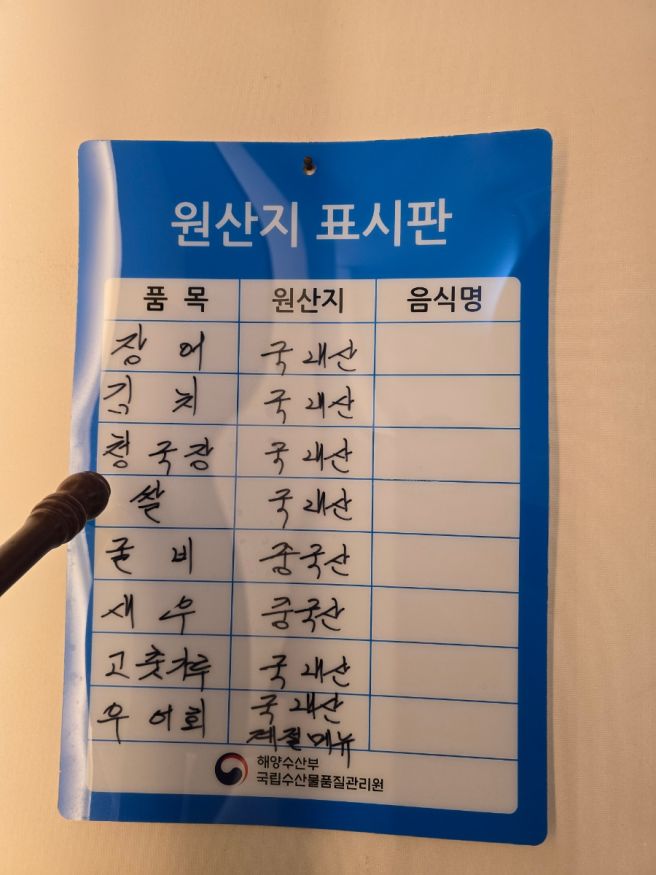 원산지 표시판
품 목 원산지 음식명
장 어 국내산
김 치 국내산
청국장 국내산
쌀 국내산
굴 비 중국산
새 우 중국산
고춧가루 국내산
우어회 국내산
계절메뉴
해양수산부
국립수산물품질관리원